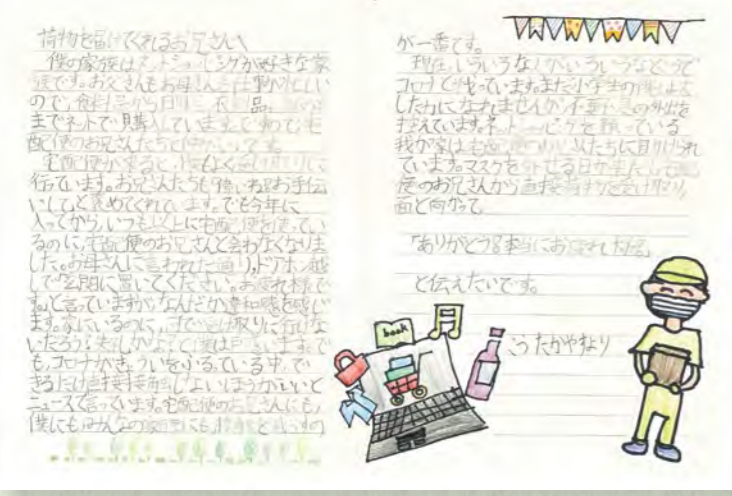 荷物を届けてくれるお兄さんへ
僕の家族はネットショッピングが好きな家
族です。お父さんもお母さんも仕事が忙しい
ので、食料品から日用品、衣料品、
までネットで購入しています。なので、宅
配便のお兄さんたちと仲がいいです。
宅配便が来ると、僕もよく受け取りに
行っています。お兄さんたちも「偉いね。お手伝
いして」と褒めてくれています。でも今年に
入ってから、いつも以上に宅配便を使ってい
るのに、宅配便のお兄さんと会わなくなりま
した。お母さんに言われた通り、ドアホン越
しで「玄関に置いてください。お疲れ様で
す。」と言っていますが、なんだか違和感を感じ
ます。家にいるのに、
いだろう?失礼かな?と僕は思います。で
も、コロナがきょういをふるっている中、で
きるだけ直接接触しないほうがいいと
ニュースで言っています。宅配便のお兄さんにも、
僕にもみんなの家族にも、接触を減らすの
が一番です。
現在、いろいろな人がいろいろなところで
コロナと戦っています。まだ小学生の僕は大
した力になれませんが、不要不急の外出を
控えています。ネットショッピングを頼っている
我が家は宅配便のお兄さんたちに助けられ
ています。マスクを外せる日が来たら、宅配
便のお兄さんから直接荷物を受け取り、
面と向かって、
「ありがとう。本当にお疲れ様。」
と伝えたいです。
book
こう たかやすより